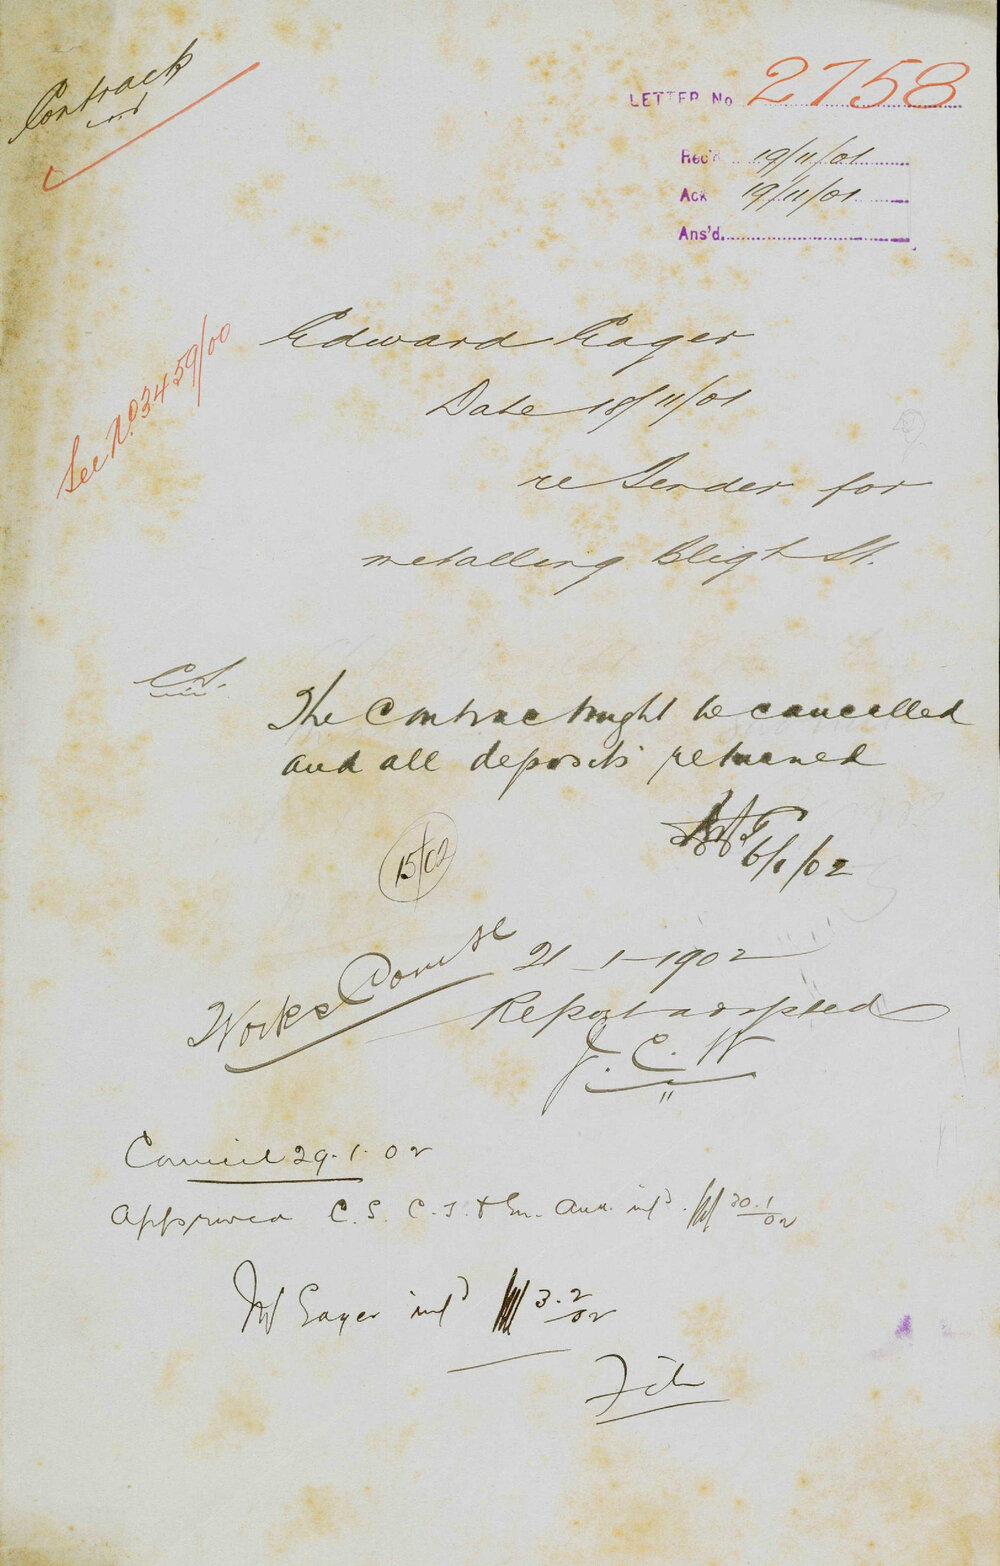 Contrack
LETTER No 2758
Rec'd 19/11/01
Ack 19/11/01
Ans'd.
See No. 3459/00
Edward Eager
Date 18/11/01
re Tender for
metalling Bligh St.
C.S.
The Contract might be cancelled
and all deposits returned
6/1/02
15/02
Works Comtee 21-1-1902
Report adopted
J. C. W
Council 29.1.02
Approved C.S. C.T. & En. Aud. infd. 30.1/02
Mr Eager infd 3.2/02
File